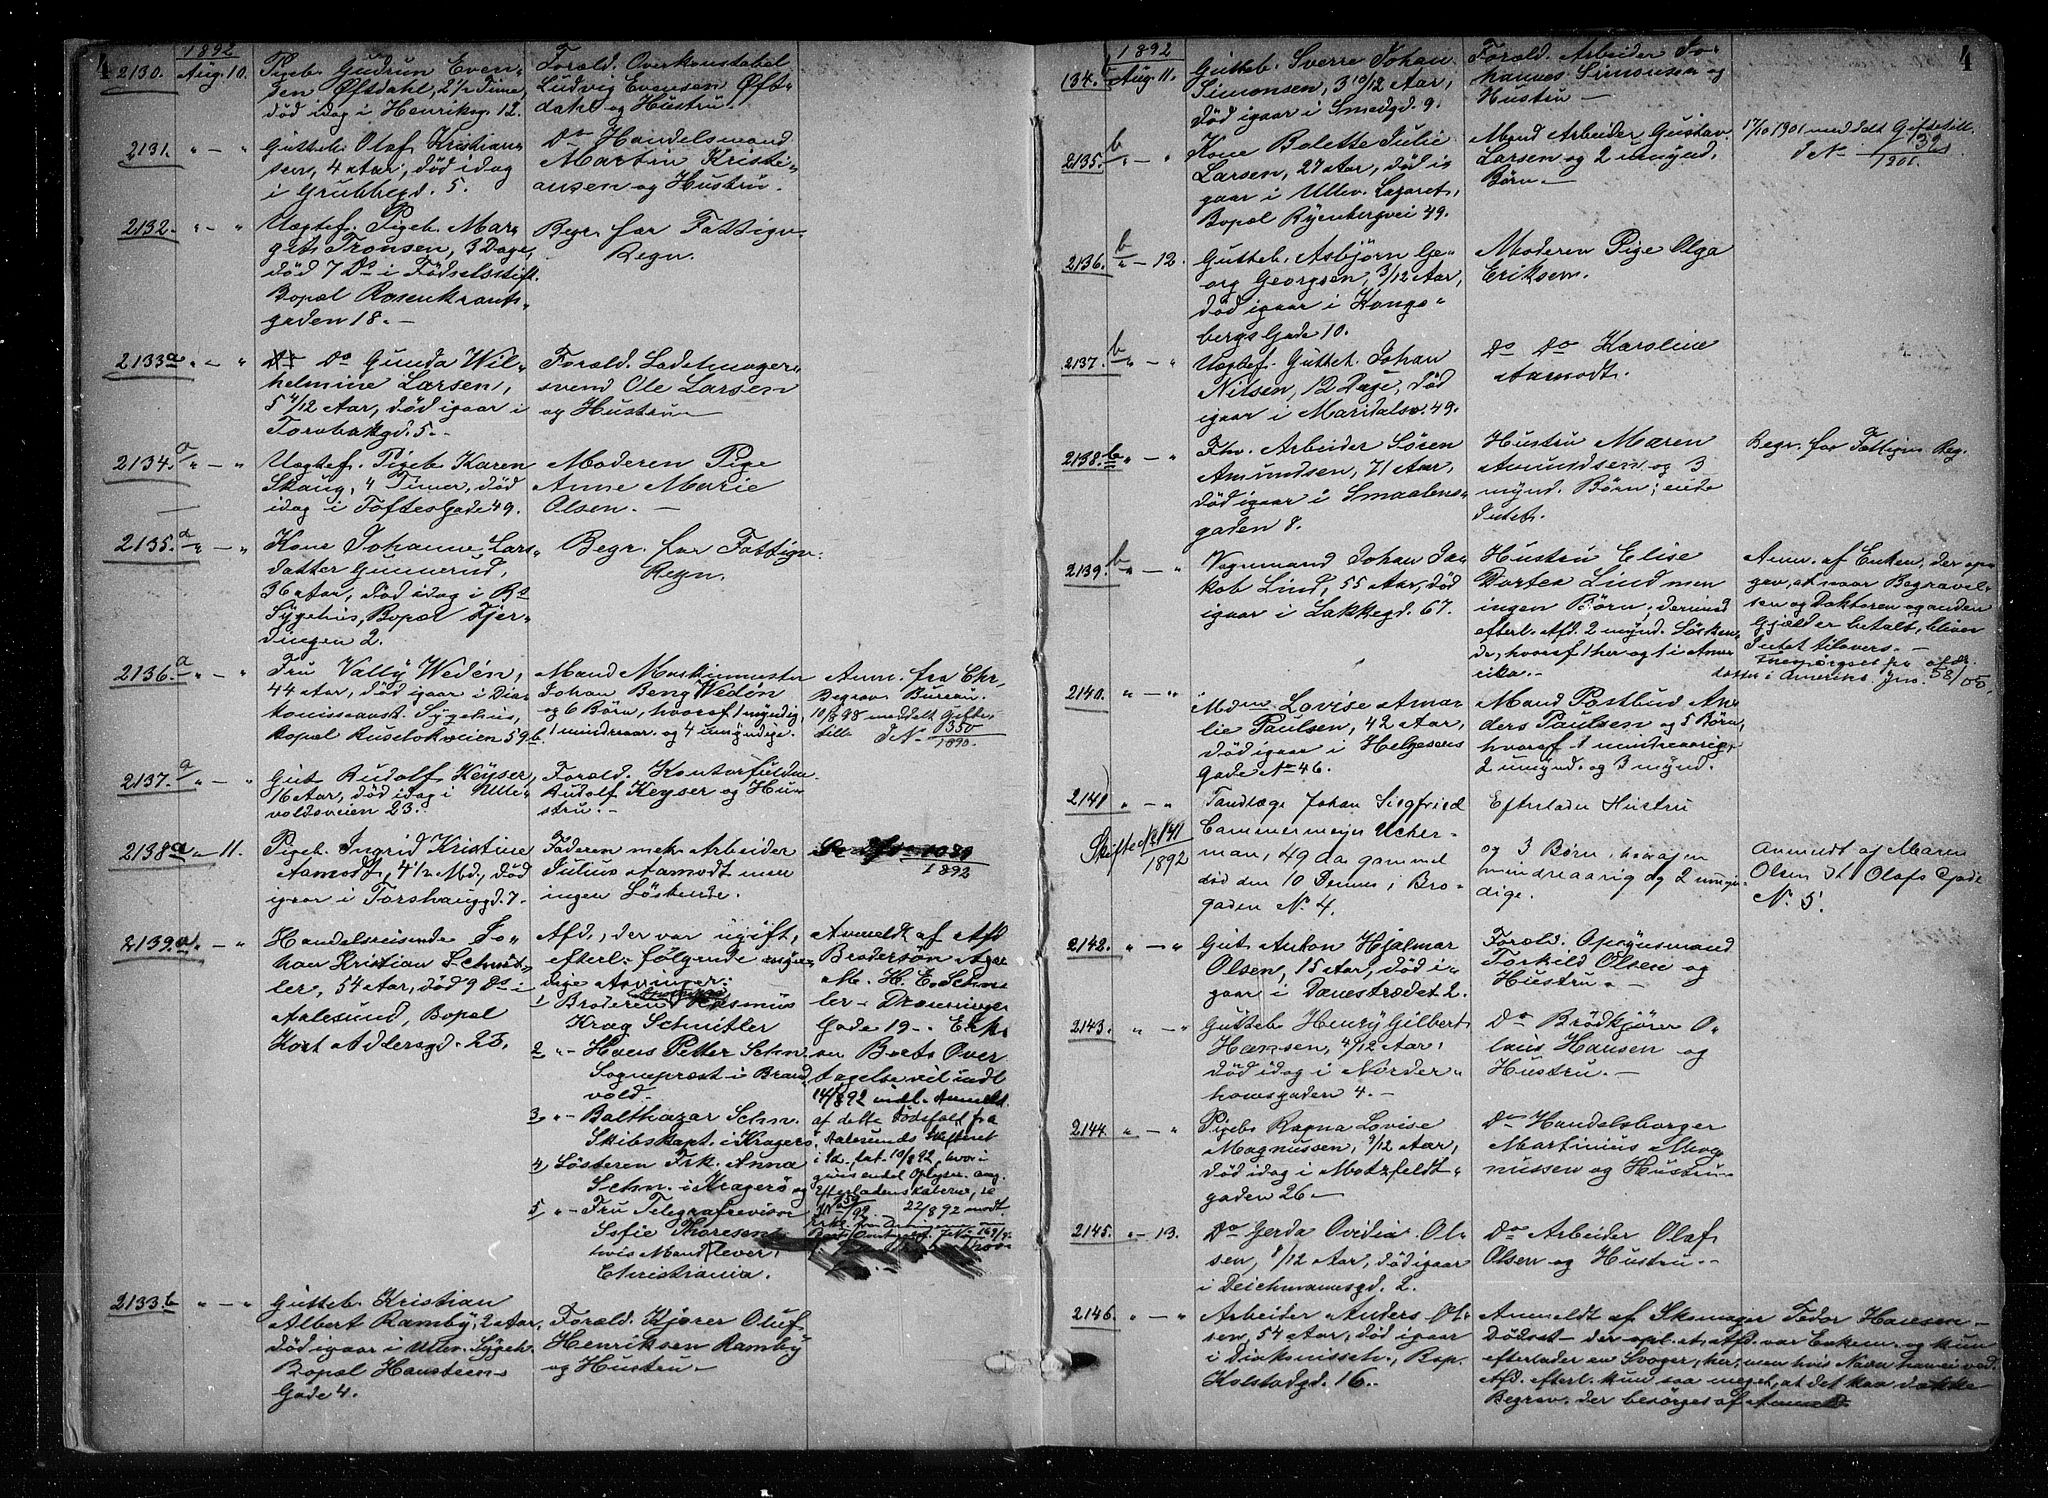 4
1892
2130. Aug. 10. Pigeb. Gudrun Even-
sen Øftdahl, 2 1/2 Time,
død idag i Henriksg. 12.
Foræld. Overkonstabel
Ludvig Evensen Øft-
dahl og Hustru.
2131. " — " Gutteb. Olaf Kristian-
sen, 4 Aar, død idag
i Grubbegd. 5.
Do Handelsmand
Martin Kristi-
ansen og Hustru.
2132. " — " Uægtef. Pigeb. Mar-
git Tronsen, 3 Dage,
død 7 Ds i Fødselsstift.
Bopæl Rosenkrants-
gaden 18. —
Begr. for Fattigv.
Regn.
2133a " — " Do Gunda Wil-
helmine Larsen,
5 4/12 Aar, død igaar i
Tornbakgd. 5. —
Foræld. Ladelmager-
svend Ole Larsen
og Hustru —
2134. a " — " Uægtef. Pigeb. Karen
Skaug, 4 Timer, død
idag i Toftes Gade 49.
Moderen Pige
Anne Marie
Olsen. —
2135. a " — " Kone Johanne Lars-
datter Gunnerud,
36 Aar, død idag i Rs
Sygehus, Bopæl Fjer-
dingen 2.
Begr. for Fattigv.
Regn.
2136. a " — " Fru Vally Wedén,
44 Aar, død igaar i Dia-
konisseanst. Sygehus,
Bopæl Ruseløkveien 59b.
Mand Maskinmester
Johan Beng Wedén
og 6 Børn, hvoraf 1 myndig,
1 mindreaar. og 4 umyndige.
Anm. fra Chr.
Begrav. Bureau.
10/8 98 meddelt Skifte-
tille d No 1350/1890.
2137. a " — " Gut Rudolf Keyser,
16 Aar, død idag i Ulle-
voldsveien 23.
Foræld. Kontorfuldm.
Rudolf Keyser og Hu-
stru. —
2138a " — 11. Pigeb. Ingrid Kristine
Aamodt, 4 1/2 Md., død
igaar i Torshauggd. 7.
Faderen mek. Arbeider
Julius Aamodt men
ingen Søskende.
1892
2139. a " — " Handelsreisende Jo-
han Kristian Schmit-
ler, 54 Aar, død 9 Ds i
Aalesund, Bopæl
Kort Adlersgd. 23.
Afd., der var ugift,
efterl. følgende myn-
dige Arvinger:
1 Broderen Rasmus
Krag Schnitler
2 " - Hans Petter Schn.
Sogneprest i Brand
vold. —
3 " - Balthazar Schn.
Skibskapt. i Kragerø
4 Søsteren Frk. Anna
Schn. i Kragerø og
5 " - Fru Telegrafrevisor
Sofie Thoresen
hvis Mand lever,
Christiania.
Anmeldt af Afd
Brodersøn Agen
M. H. E. Schnit
ler - Dronningens
Gade 19 -
en Boets Over
tagelse vil indl
14/8 92 indl. Anmeld.
af dette Dødsfald fra
Aalesunds Skifteret
10/8 92, hvori
Efterladenskaberne,
22/8 92 modt.
2133b " — " Gutteb. Kristian
Albert Ramby, 2 Aar,
død igaar i Ullev. Sygeh.
Bopæl Hansteens
Gade 4.
Foræld. Kjører Oluf
Henriksen Ramby
og Hustru. —
4
1892
134. b Aug. 11. Gutteb. Sverre Johan
Simonsen, 3 10/12 Aar,
død igaar i Smedgd. 9.
Foræld. Arbeider Jo-
hannes Simonsen og
Hustru —
2135. b " — " Kone Bolette Julie
Larsen, 27 Aar, død i-
gaar i Ullev. Lazaret,
Bopæl Ryenbergvei 49.
Mand Arbeider Gustav
Larsen og 2 umynd.
Børn. —
17/10 1901 meddelt Skiftetill.
d No 132/1901.
2136. b " — 12. Gutteb. Asbjørn Ge-
org Georgsen, 3/12 Aar,
død igaar i Kongs-
bergs Gade 10.
Moderen Pige Olga
Eriksen.
2137. b " — " Uægtef. Gutteb. Johan
Nilsen, 12 Dage, død
igaar i Maridalsv. 49.
Do Do Karoline
Aamodt.
2138. b " — " Fhv. Arbeider Søren
Amundsen, 71 Aar,
død igaar i Smaalens-
gaden 8.
Hustru Maren
Amundsen og 3
mynd. Børn; eiede
Intet.
Begr. for Fattigvs Reg.
2139. b " — " Vognmand Johan Ja-
kob Lind, 55 Aar, død
igaar i Lakkegd. 67.
Hustru Elise
Dortea Lind men
ingen Børn; derimod
efterl. Afd. 2 mynd. Søsken-
de, hvoraf 1 her og 1 i Ame-
rika. —
Anm. af Enken, der opa-
gev, at naar Begravel-
sen og Doktoren og anden
Gjælder betalt, bliver
Intet tilovers. —
Forespørgsel fra afdr.
søster i Amerika Jno. 58/05.
2140. " — " Mdm Lovise Ama-
lie Paulsen, 42 Aar,
død igaar i Helgesens
Gade No 46.
Mand Postbud An-
ders Paulsen og 5 Børn,
hvoraf 1 mindreaarig,
2 umynd. og 3 mynd.
2141 " — " Tandlæge Johan Siegfried
Cammermeyer Ucher-
man, 49 Aa gammel
død den 10 Dennes i Bro-
gaden No 4.
1892
Efterlader Hustru
og 3 Børn, hvoraf en
mindreaarig og 2 umyn-
dige.
Anmeldt af Maren
Olsen St Olafs Gade
No 5.
2142. " — " Gut Anton Hjalmar
Olsen, 15 Aar, død i-
gaar i Danestrædet 2.
Foræld. Opsynsmand
Torkild Olsen og
Hustru. —
2143. " — " Gutteb. Henry Gilbert
Hansen, 4/12 Aar,
død idag i Nørder-
hovsgaden 4. —
Do Brødkjører O-
laus Hansen og
Hustru. —
2144. " — " Pigeb. Ragna Lovise
Magnussen, 9/12 Aar,
død idag i Motzfeldt-
gaden 26 —
Do Handelsborger
Martinius Mag-
nussen og Hustru —
2145. " — 13. Do Gerda Ovidia Ol-
sen, 8/12 Aar, død igaar
i Deichmannsgd. 2.
Do Arbeider Olaf
Olsen og Hustru. —
2146. " — " Arbeider Anders Ol-
sen, 54 Aar, død igaar
i Diakonisseh., Bop.
Kolstadgd. 16. —
Anmeldt af Skomager Fedor Hansen —
Dødsst — der opl. at Afd. var Enkem. og kun
efterlader en Svoger, her, men hvis Navn han ei ved.
Afd. efterl. kun saa meget, at det kan dække
Begrav. der besørges af Anmeld.